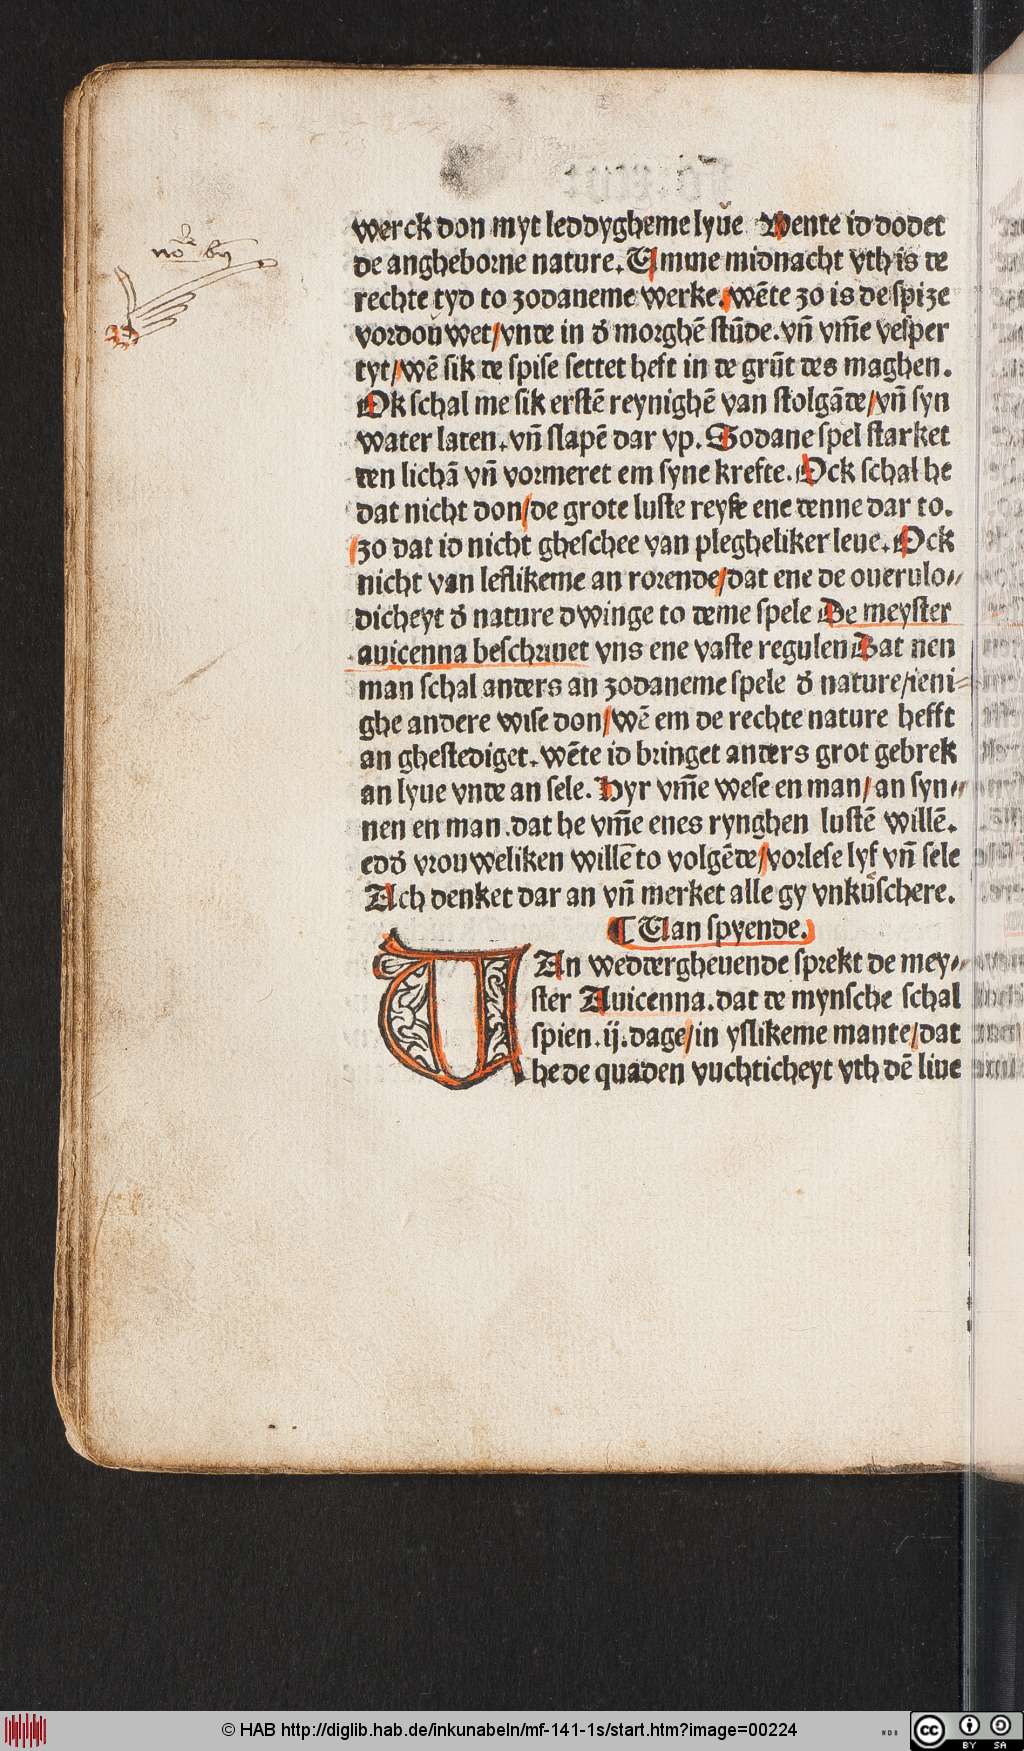 werck don myt leddygheme lyue Wente id dodet
de angheborne nature. Umme midnacht vth is de
rechte tyd to zodaneme werke. wēte zo is de spize
vordoūwet/vnde in đ morghē stūde. vn̄ vm̄e vesper
tyt/wē sik de spise settet heft in de grūt des maghen.
Ok schal me sik erstē reynighē van stolgāde/vn̄ syn
water laten. vn̄ slapē dar vp. Sodane spel starket
den lichā vn̄ vormeret em syne krefte. Ock schal he
dat nicht don/de grote luste reyse ene denne dar to.
zo dat id nicht gheschee van plegheliker leue. Ock
nicht van leflikeme an rorende/dat ene de ouerulo⸗
dicheyt đ nature dwinge to deme spele De meyster
auicenna beschriuet vns ene vaste regulen Dat nen
man schal anders an zodaneme spele đ nature/ieni⸗
ghe andere wise don/wē em de rechte nature hefft
an ghestediget. wēte id bringet anders grot gebrek
an lyue vnde an sele. Hyr vm̄e wese en man/an syn⸗
nen en man. dat he vm̄e enes rynghen lustē willē.
edđ vrouweliken willē to volgēde/vorlese lyf vn̄ sele
Ach denket dar an vn̄ merket alle gy vnkůschere.
¶ Uan spyende.
UAn wedderghevende sprekt de mey⸗
ster Auicenna. dat de mynsche schal
spien. ij. dage/in yslikeme mante/dat
he de quaden vuchticheyt vth dē liue
© HAB http://diglib.hab.de/inkunabeln/mf-141-1s/start.htm?image=00224
BY SA